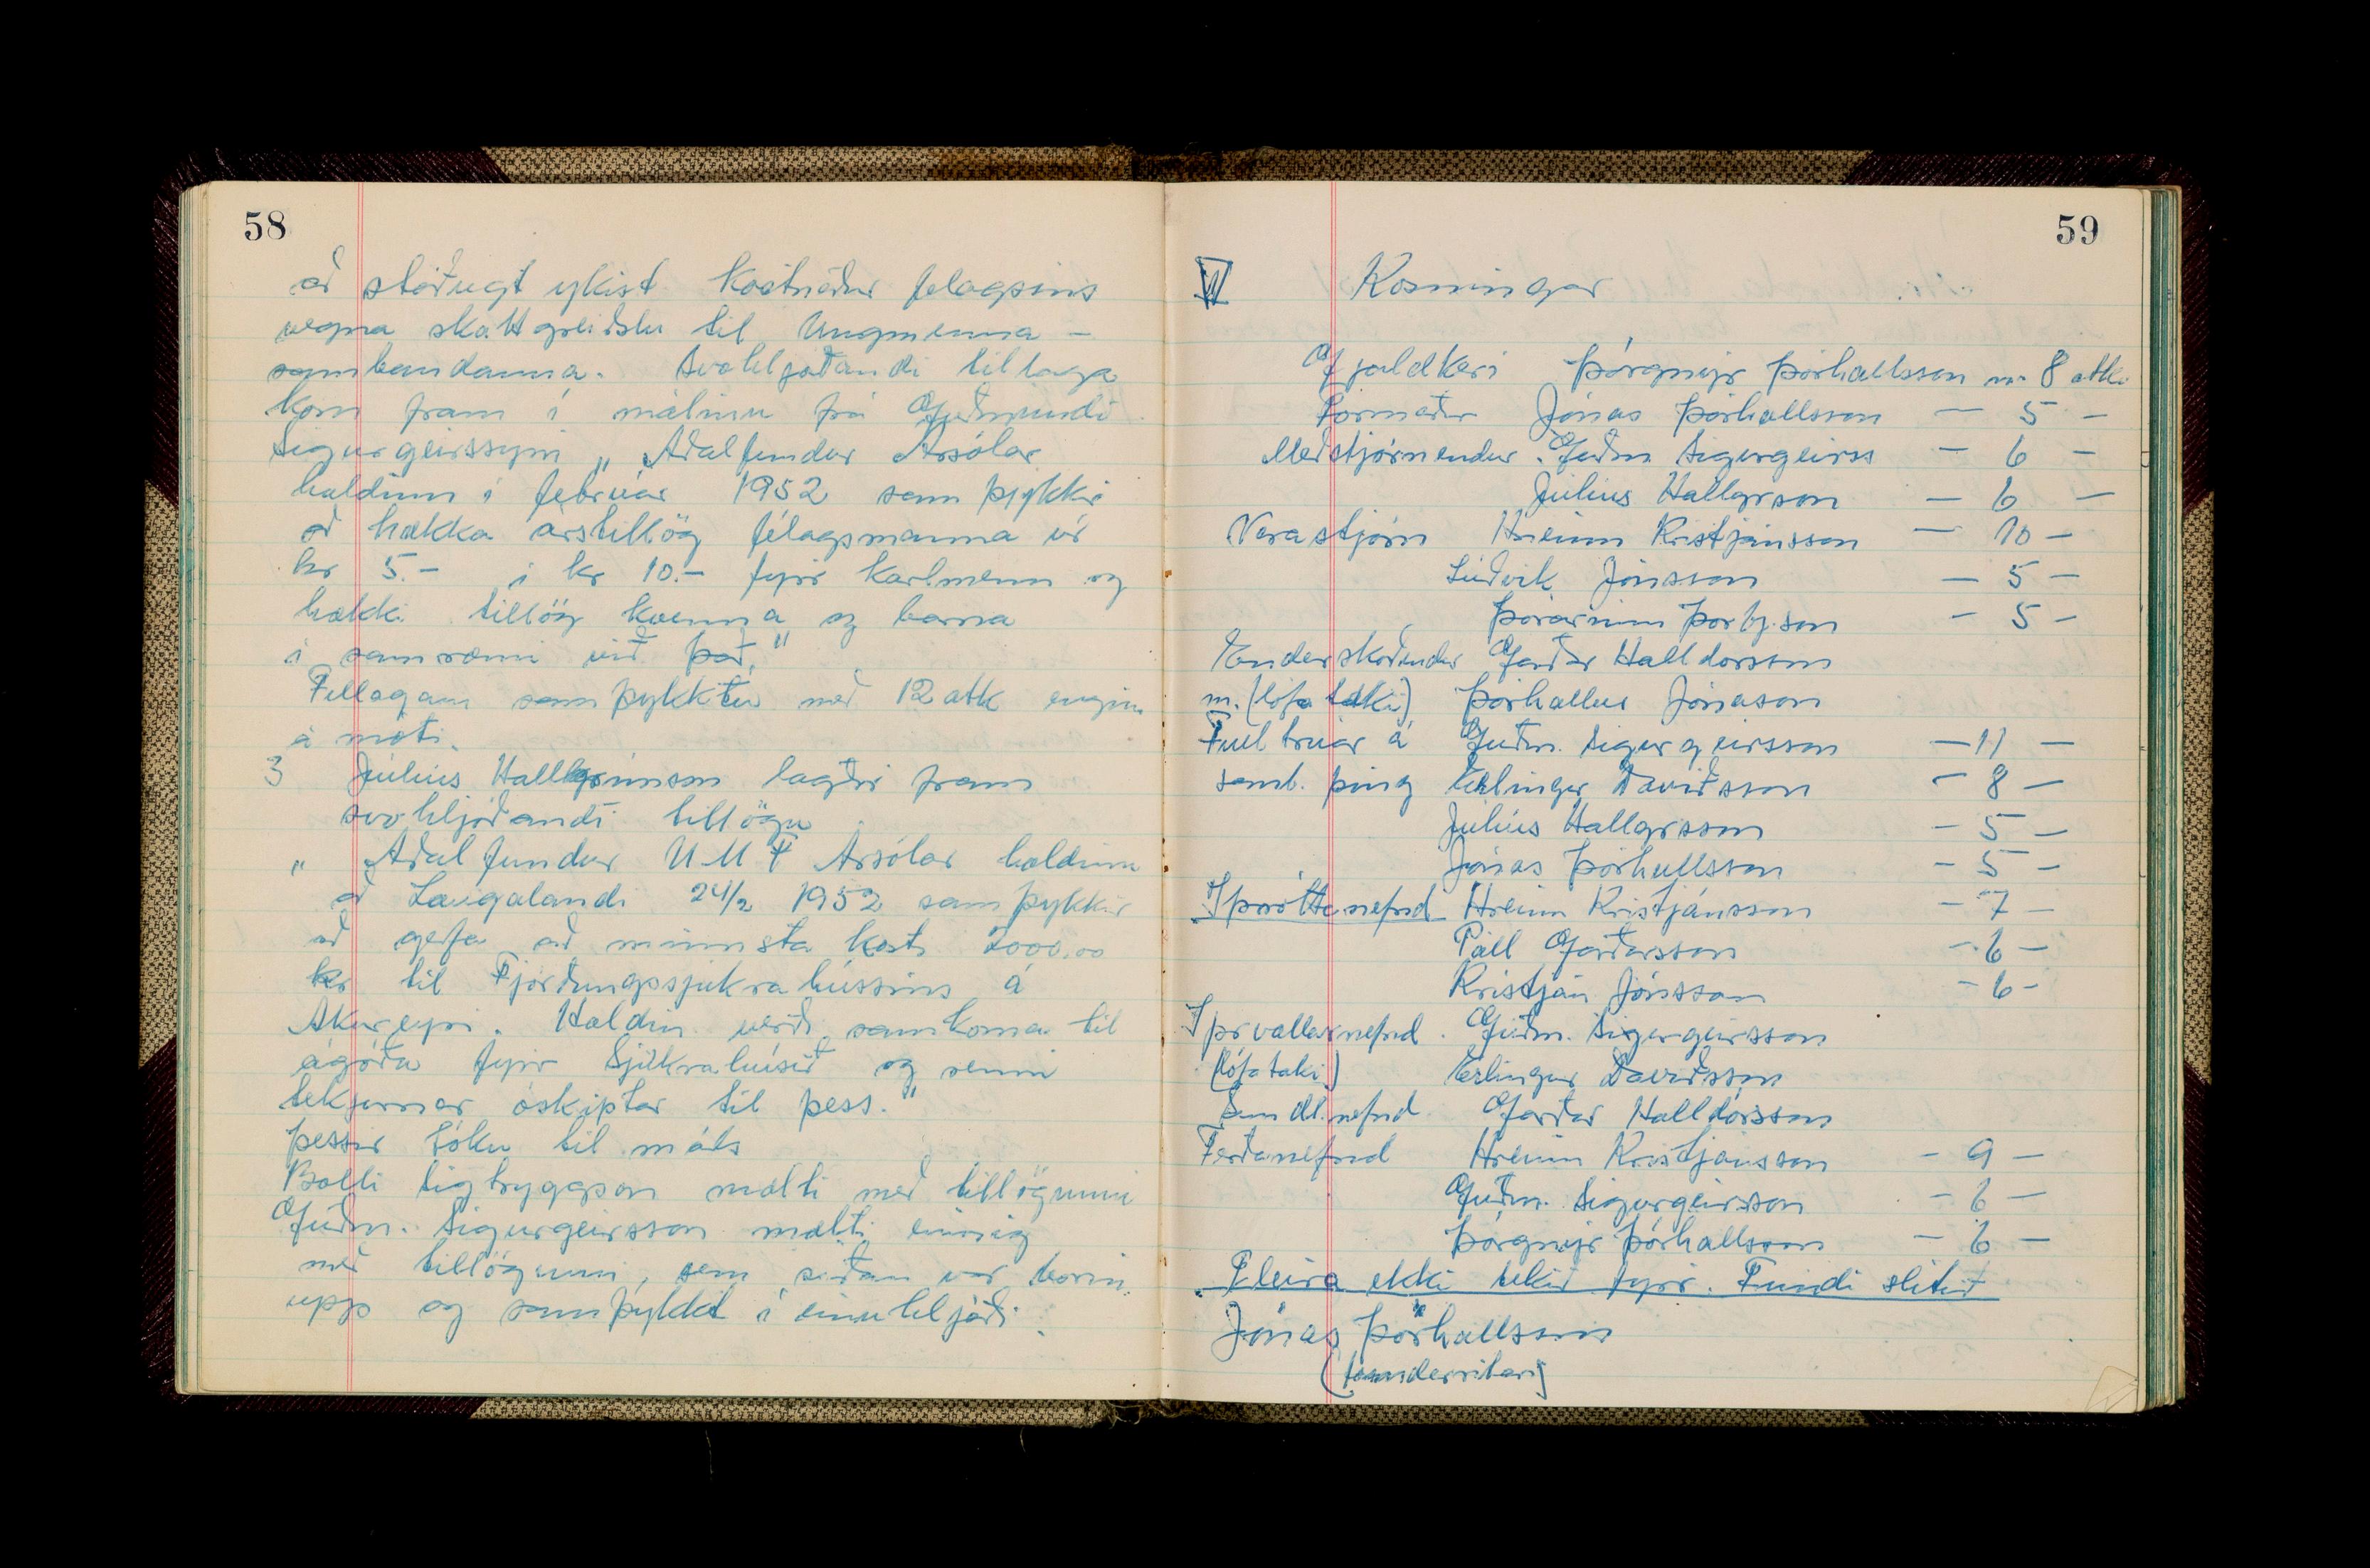 58
að stöðugt ykist kostnaður felagsins
vegna skattgreiðslu til Ungmenna-
sambandanna. Svohljóðandi tillaga
kom fram í málinu frá Guðmundi
Sigurgeirssyni „Aðalfundur Ársólar
haldinn í febrúar 1952 samþykkir
að hækka árstillög félagsmanna úr
kr 5.- í kr 10.- fyrir karlmenn og
hækki tillög kvenna og barna
í samræmi við það."
Tillagan samþykktur með 12 atk engin
á móti.
3 Júlíus Hallgrímson lagði fram
svohljóðandi tillögu
„ Aðalfundur U M F Arsólar haldinn
að Laugalandi 24/2 1952 samþykkir
að gefa að minnsta kosti 2000.00
kr til Fjórðungssjúkrahússins á
Akureyri. Haldin verði samkoma til
ágóða fyrir Sjúkrahúsið og renni
tekjurnar óskiptar til þess."
þessir tóku til máls
Balli Sigtryggson mælti með tillögunni
Guðm. Sigurgeirsson mælti einnig
með tillögunni, sem síðan var borin
upp og samþykkt í einu hljóði.
59
VI Kosningar
Gjaldkeri Þórgnýr Þórhallsson m. 8 atk.
Formaður Jónas Þórhallsson — 5 —
Meðstjórnendur Guðm Sigurgeirss — 6 —
Júlíus Hallgrson — 6 —
Varastjórn Hreinn Kristjánsson — 10 —
Lúðvík Jónsson — 5 —
Þórarinn Þorbj.son — 5 —
Endurskoðendur Garðar Halldórsson
m. (lófataki) Þórhallur Jónasson
Fulltrúar á Guðm. Sigurgeirsson — 11 —
samb. þing Erlingur Davíðsson — 8 —
Júlíus Hallgrsson — 5 —
Jónas Þórhallsson — 5 —
Íþróttanefnd Hreinn Kristjánsson — 7 —
Páll Garðarsson — 6 —
Kristján Jónsson — 6 —
Íþrvallarnefnd. Guðm. Sigurgeirsson
(lófataki) Erlingur Davíðsson
Sundl.nefnd Garðar Halldórsson
Ferðanefnd Hreinn Kristjánsson — 9 —
Guðm. Sigurgeirsson — 6 —
Þórgnýr Þórhallsson — 6 —
Fleira ekki tekið fyrir. Fundi slitið
Jónas Þórhallsson
(fundarritari)